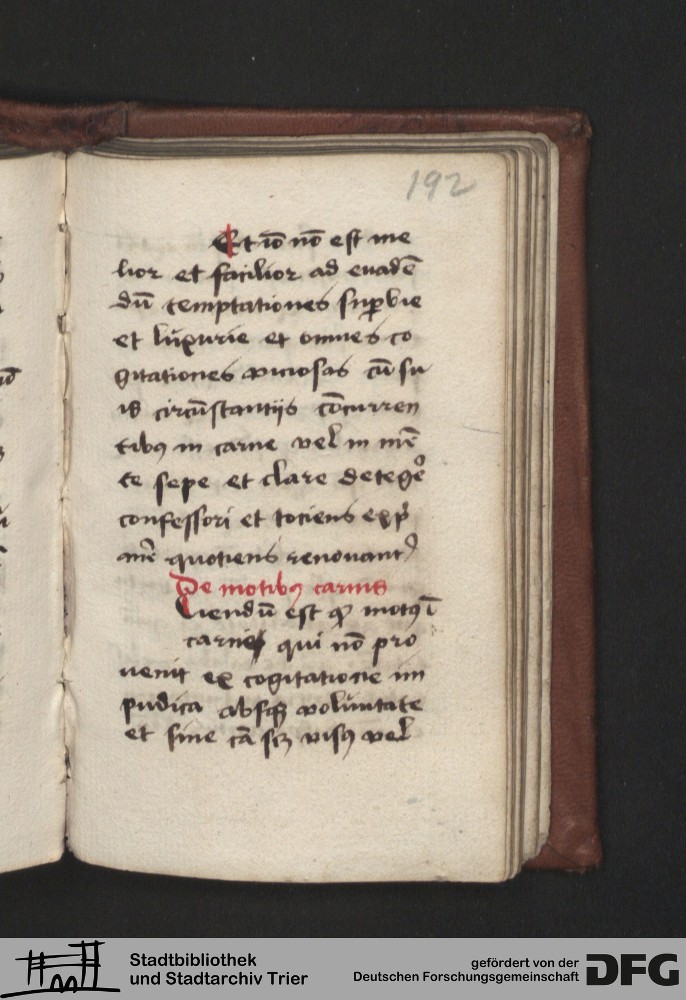 192
Et iō nō est me
lior et facilior ad euadē
dū temptationes suꝑbie
et luxurie et omnes co
gitationes viciosas cū su
is circūstantijs cōcurren
tibꝯ in carne vel in mē
te sepe et clare detegeͬ
confessori et tociens exp̄
am̄e quotiens renouant᷑
De motibꝯ carnis
Sciendū est ꝙ motꝯ ī
carne qui nō pro
uenit ex cogitatione im
pudica absqꝫ voluntate
et sine cā scꝫ visꝯ vel
Stadtbibliothek
und Stadtarchiv Trier
gefördert von der
Deutschen Forschungsgemeinschaft
DFG